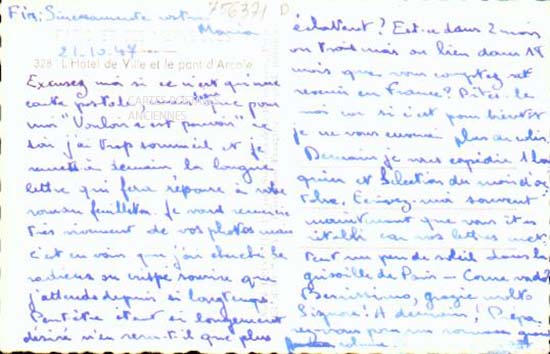 Fin, Sincèrement votre
756371 D
Maria
21.10.47
328 L'Hôtel de Ville et le pont d'Arcole
Excusez moi si ce n'est qu'une
carte postale que pour
CARTES POSTALES
ANCIENNES
moi "Vouloir c'est pouvoir" ce
soir j'ai trop sommeil et je
remets à demain la longue
lettre qui fera réponse à votre
roman feuilleton. Je vous remercie
très vivement de vos photos mais
c'est en vain que j'ai cherché le
radieux sourire que
j'attends depuis si longtemps.
Peut être étant si longuement
désiré n'en sera-t-il que plus
éclatant? Est-ce dans 2 mois
ou trois mois ou bien dans 18
mois que vous comptez
revenir en France? Dites-le
moi car si c'est pour bientôt
je ne vous enverrai plus de colis.
Demain je vous expédie 1 
 et Sélection du mois d'oc
tobre. Ecrivez-moi souvent
maintenant que vous êtes
rétabli car vos lettres met
tent un peu de soleil dans la
grisaille de Paris — Come va
Benissimo, grazie molto
Signore! A demain! Prépa
rez-vous pour un roman